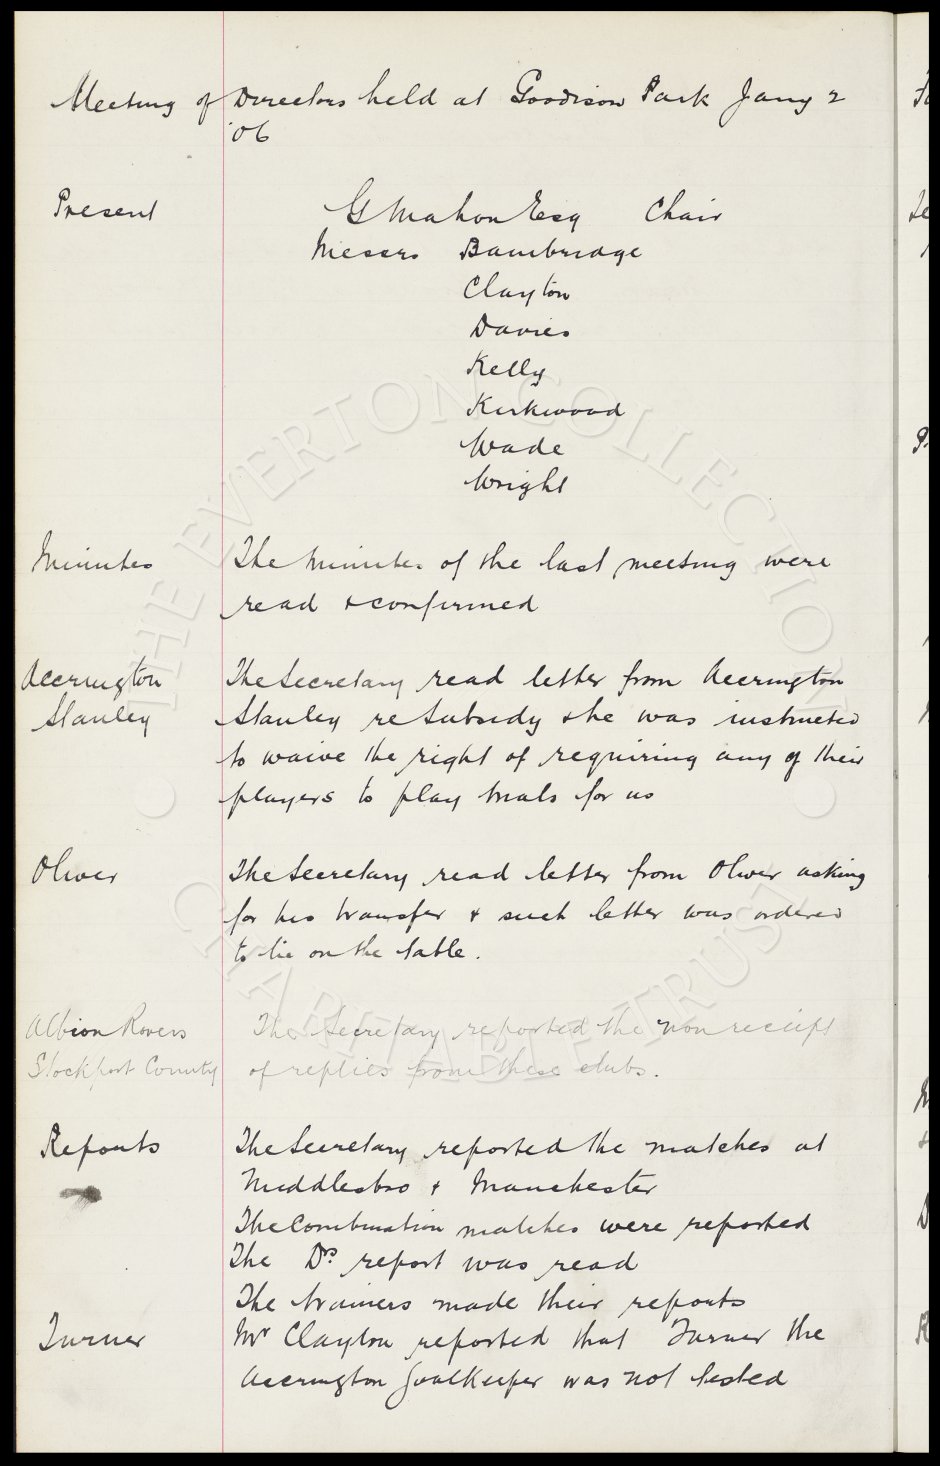 Meeting of Directors held at Goodison Park Jany 2
'06
Present G Mahon Esq Chair
Messrs Bambridge
Clayton
Davies
Kelly
Kirkwood
Wade
Wright
Minutes The minutes of the last meeting were
read & confirmed
Accrington The Secretary read letter from Accrington
Stanley Stanley re Subsidy & he was instructed
to waive the right of requiring any of their
players to play trials for us
Oliver The Secretary read letter from Oliver asking
for his transfer & such letter was ordered
to lie on the table.
Albion Rovers The Secretary reported the non receipt
Stockport County of replies from these clubs.
Reports The Secretary reported the matches at
Middlesbro & Manchester
The Combination matches were reported
The Drs report was read
The trainers made their reports
Turner Mr Clayton reported that Turner the
Accrington Goalkeeper was not tested
THE EVERTON COLLECTION
CHARITABLE TRUST